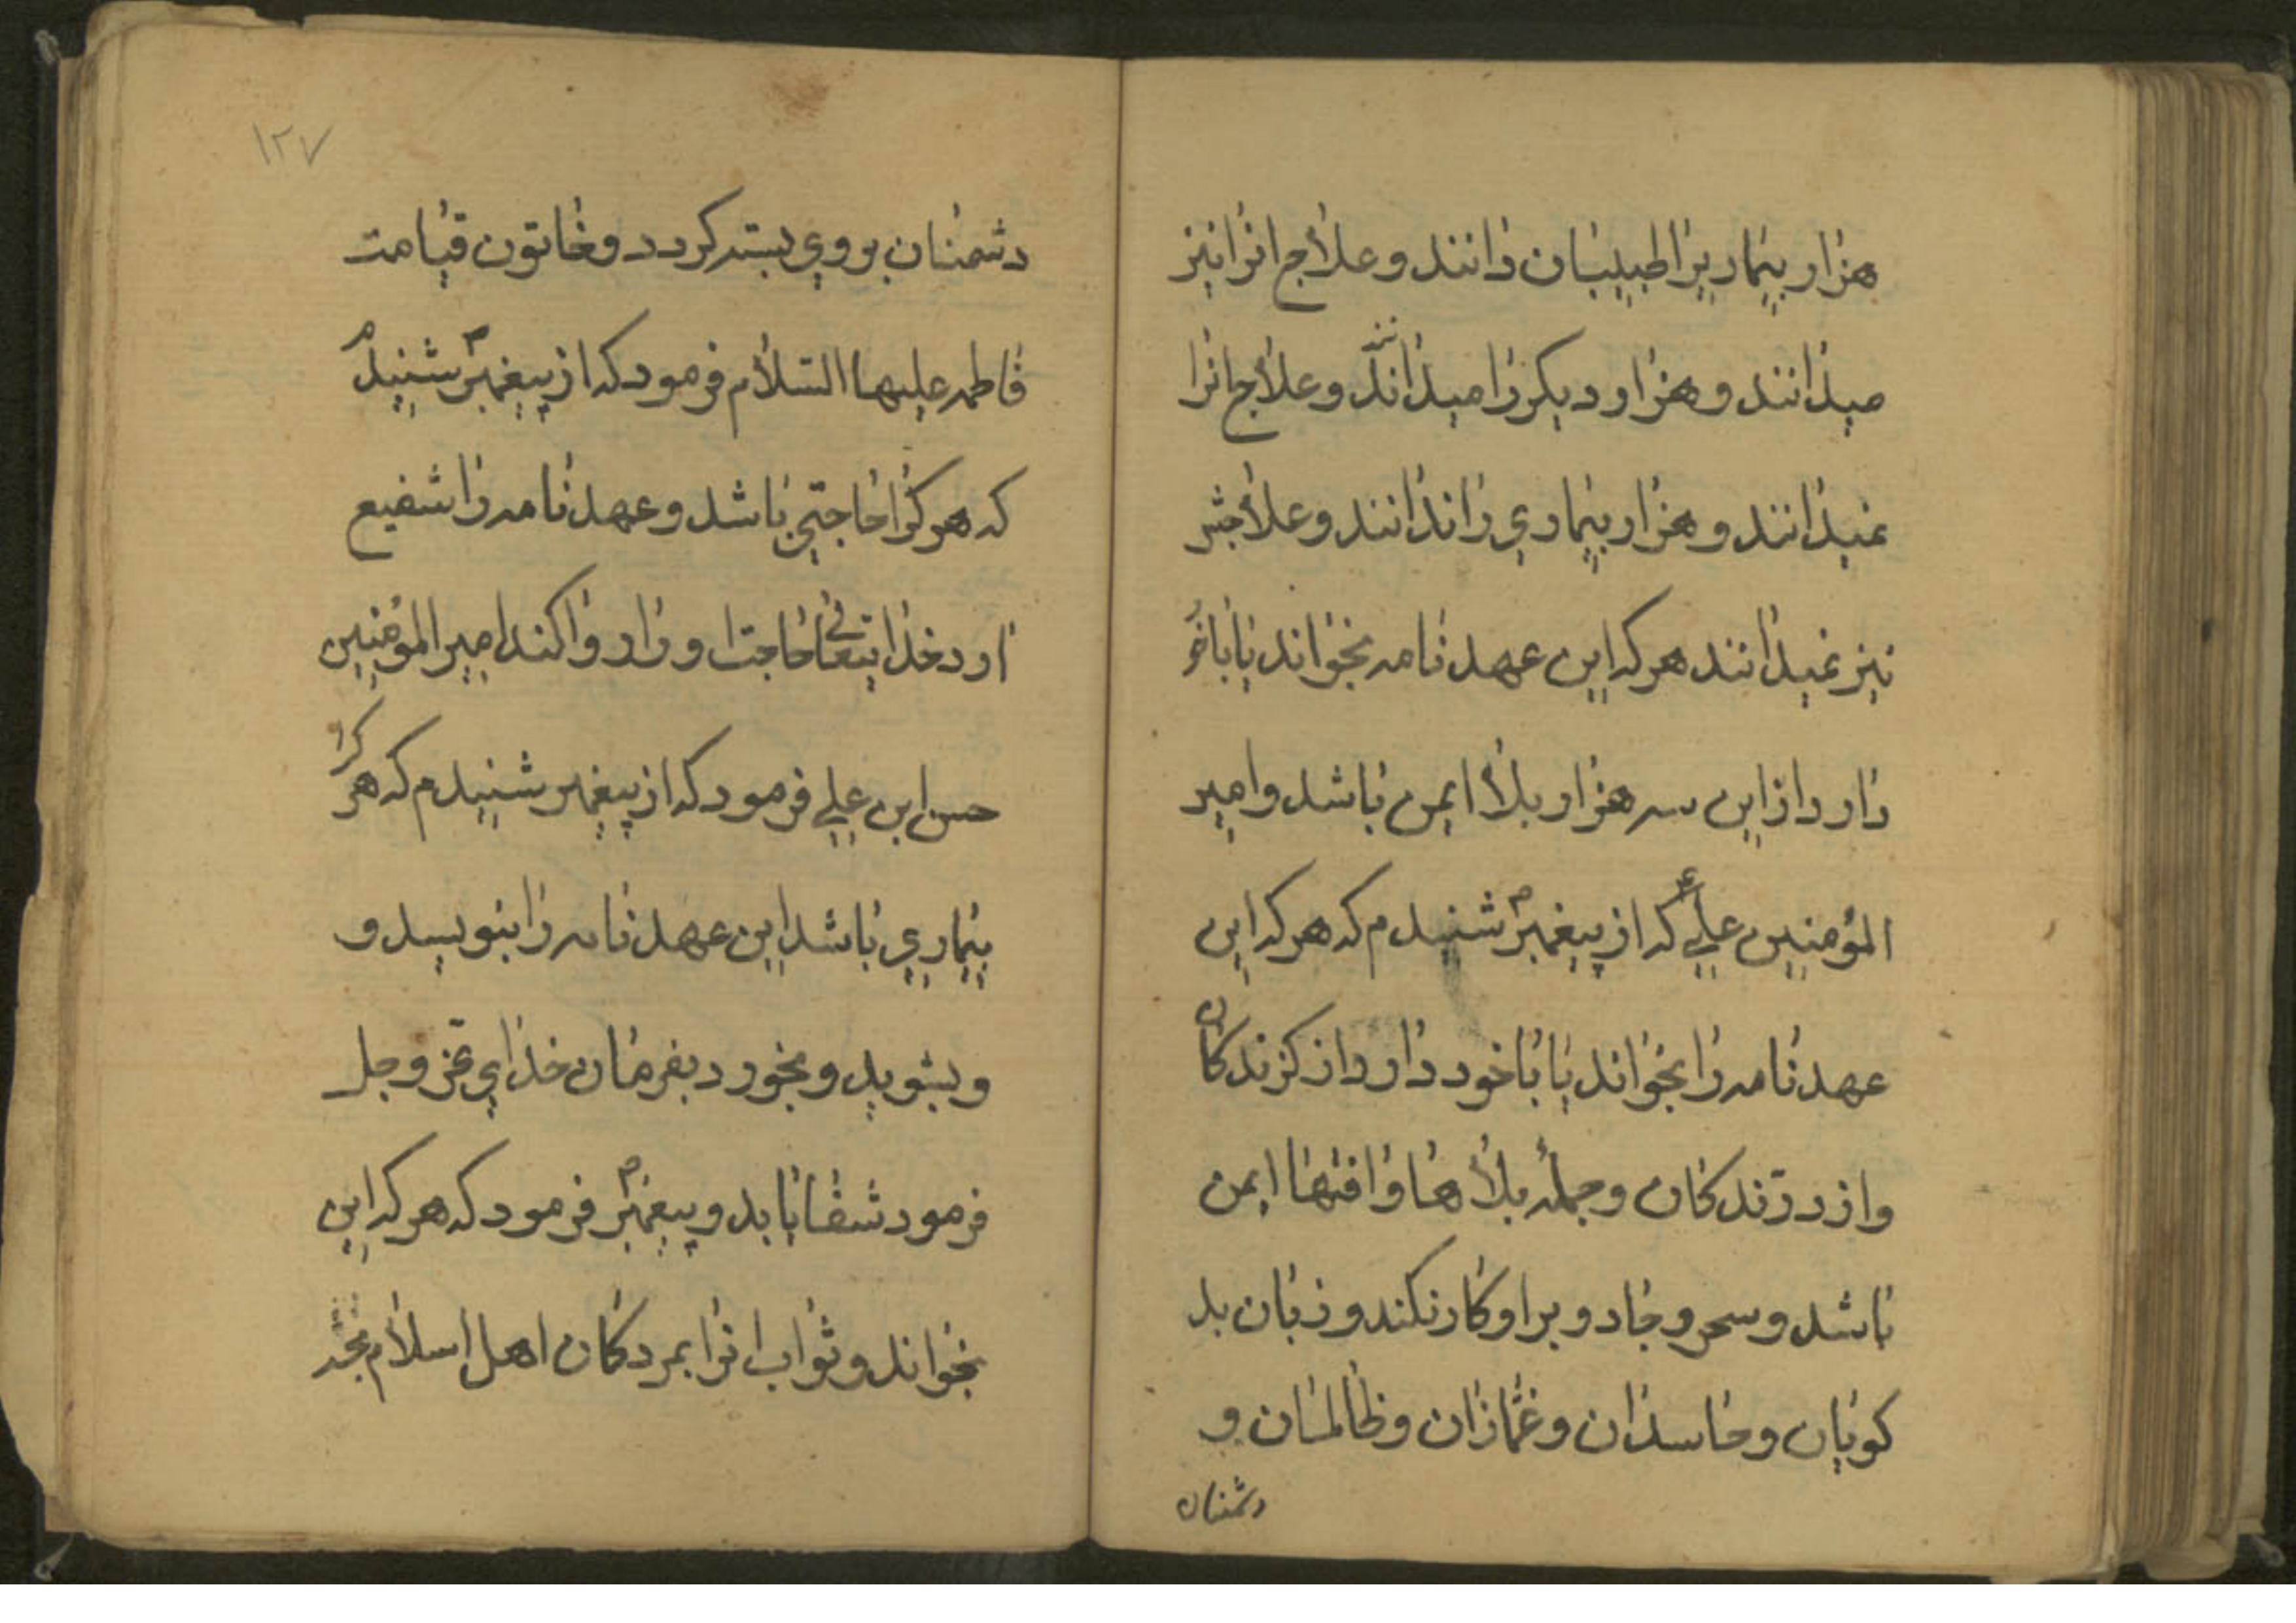 هزار بیماریرا طبیبان دانند و علاج انرا نیز
میدانند و هزار دیکر را میدانند و علاج انرا
نمیدانند و هزار بیماری را ندانند و علاجش
نیز نمیدانند هر که این عهد نامه بخواند یا باخو
دارد از این سه هزار بلا ایمن باشد و امیر
المؤمنین علی ع که از پیغمبر ص شنیدم که هر که این
عهد نامه را بخواند یا با خود دارد از کزندکان
و از درندکان و جمله بلاها و افتها ایمن
باشد و سحر و جادو بر او کار نکند و زبان بد
کویان و حاسدان و غمازان و ظالمان و
دشمنان
۱۲۷
دشمنان بر وی بسته کردد و خاتون قیامت
فاطمه علیها السلام فرمود که از پیغمبر ص شنیدم
که هر کرا حاجتی باشد و عهد نامه را شفیع
ارد خدایتعالی حاجت او را روا کند امیر المؤمنین
حسن ابن علی فرمود که از پیغمبر شنیدم که هر کرا
بیماری باشد این عهد نامه را بنویسد و
و بشوید و بخورد بفرمان خدای عز و جل
فرمود شفا یابد و پیغمبر ص فرمود که هر که این
بخواند و ثواب انرا بمردکان اهل اسلام بخشد